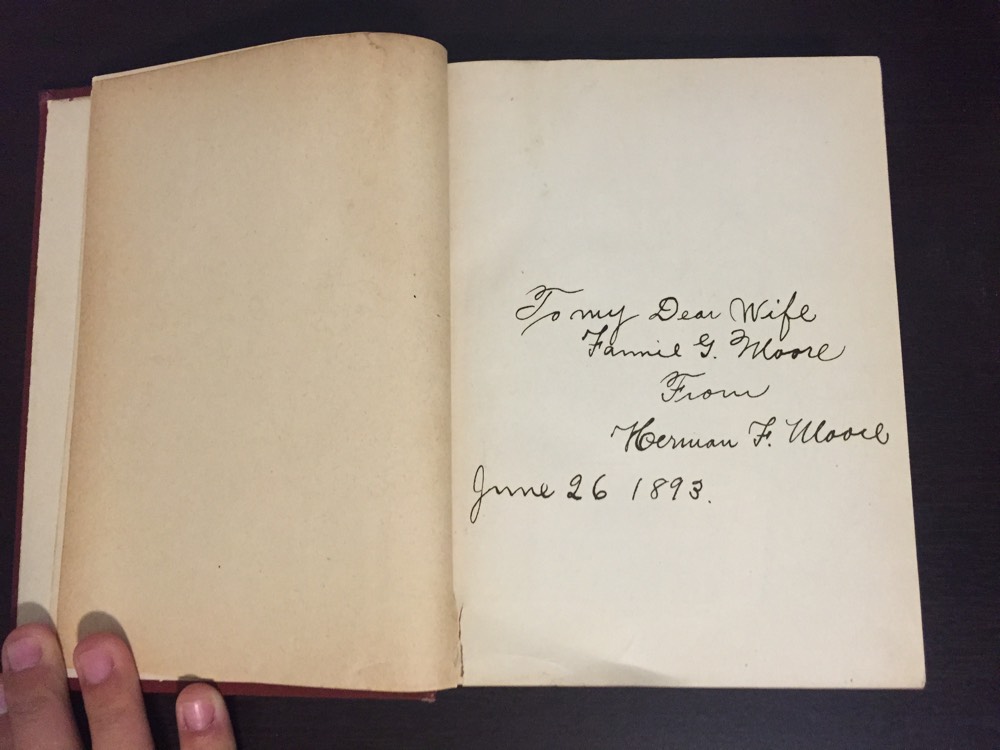 To my Dear Wife
Fannie G. Moore
From
Herman F. Moore
June 26 1893.